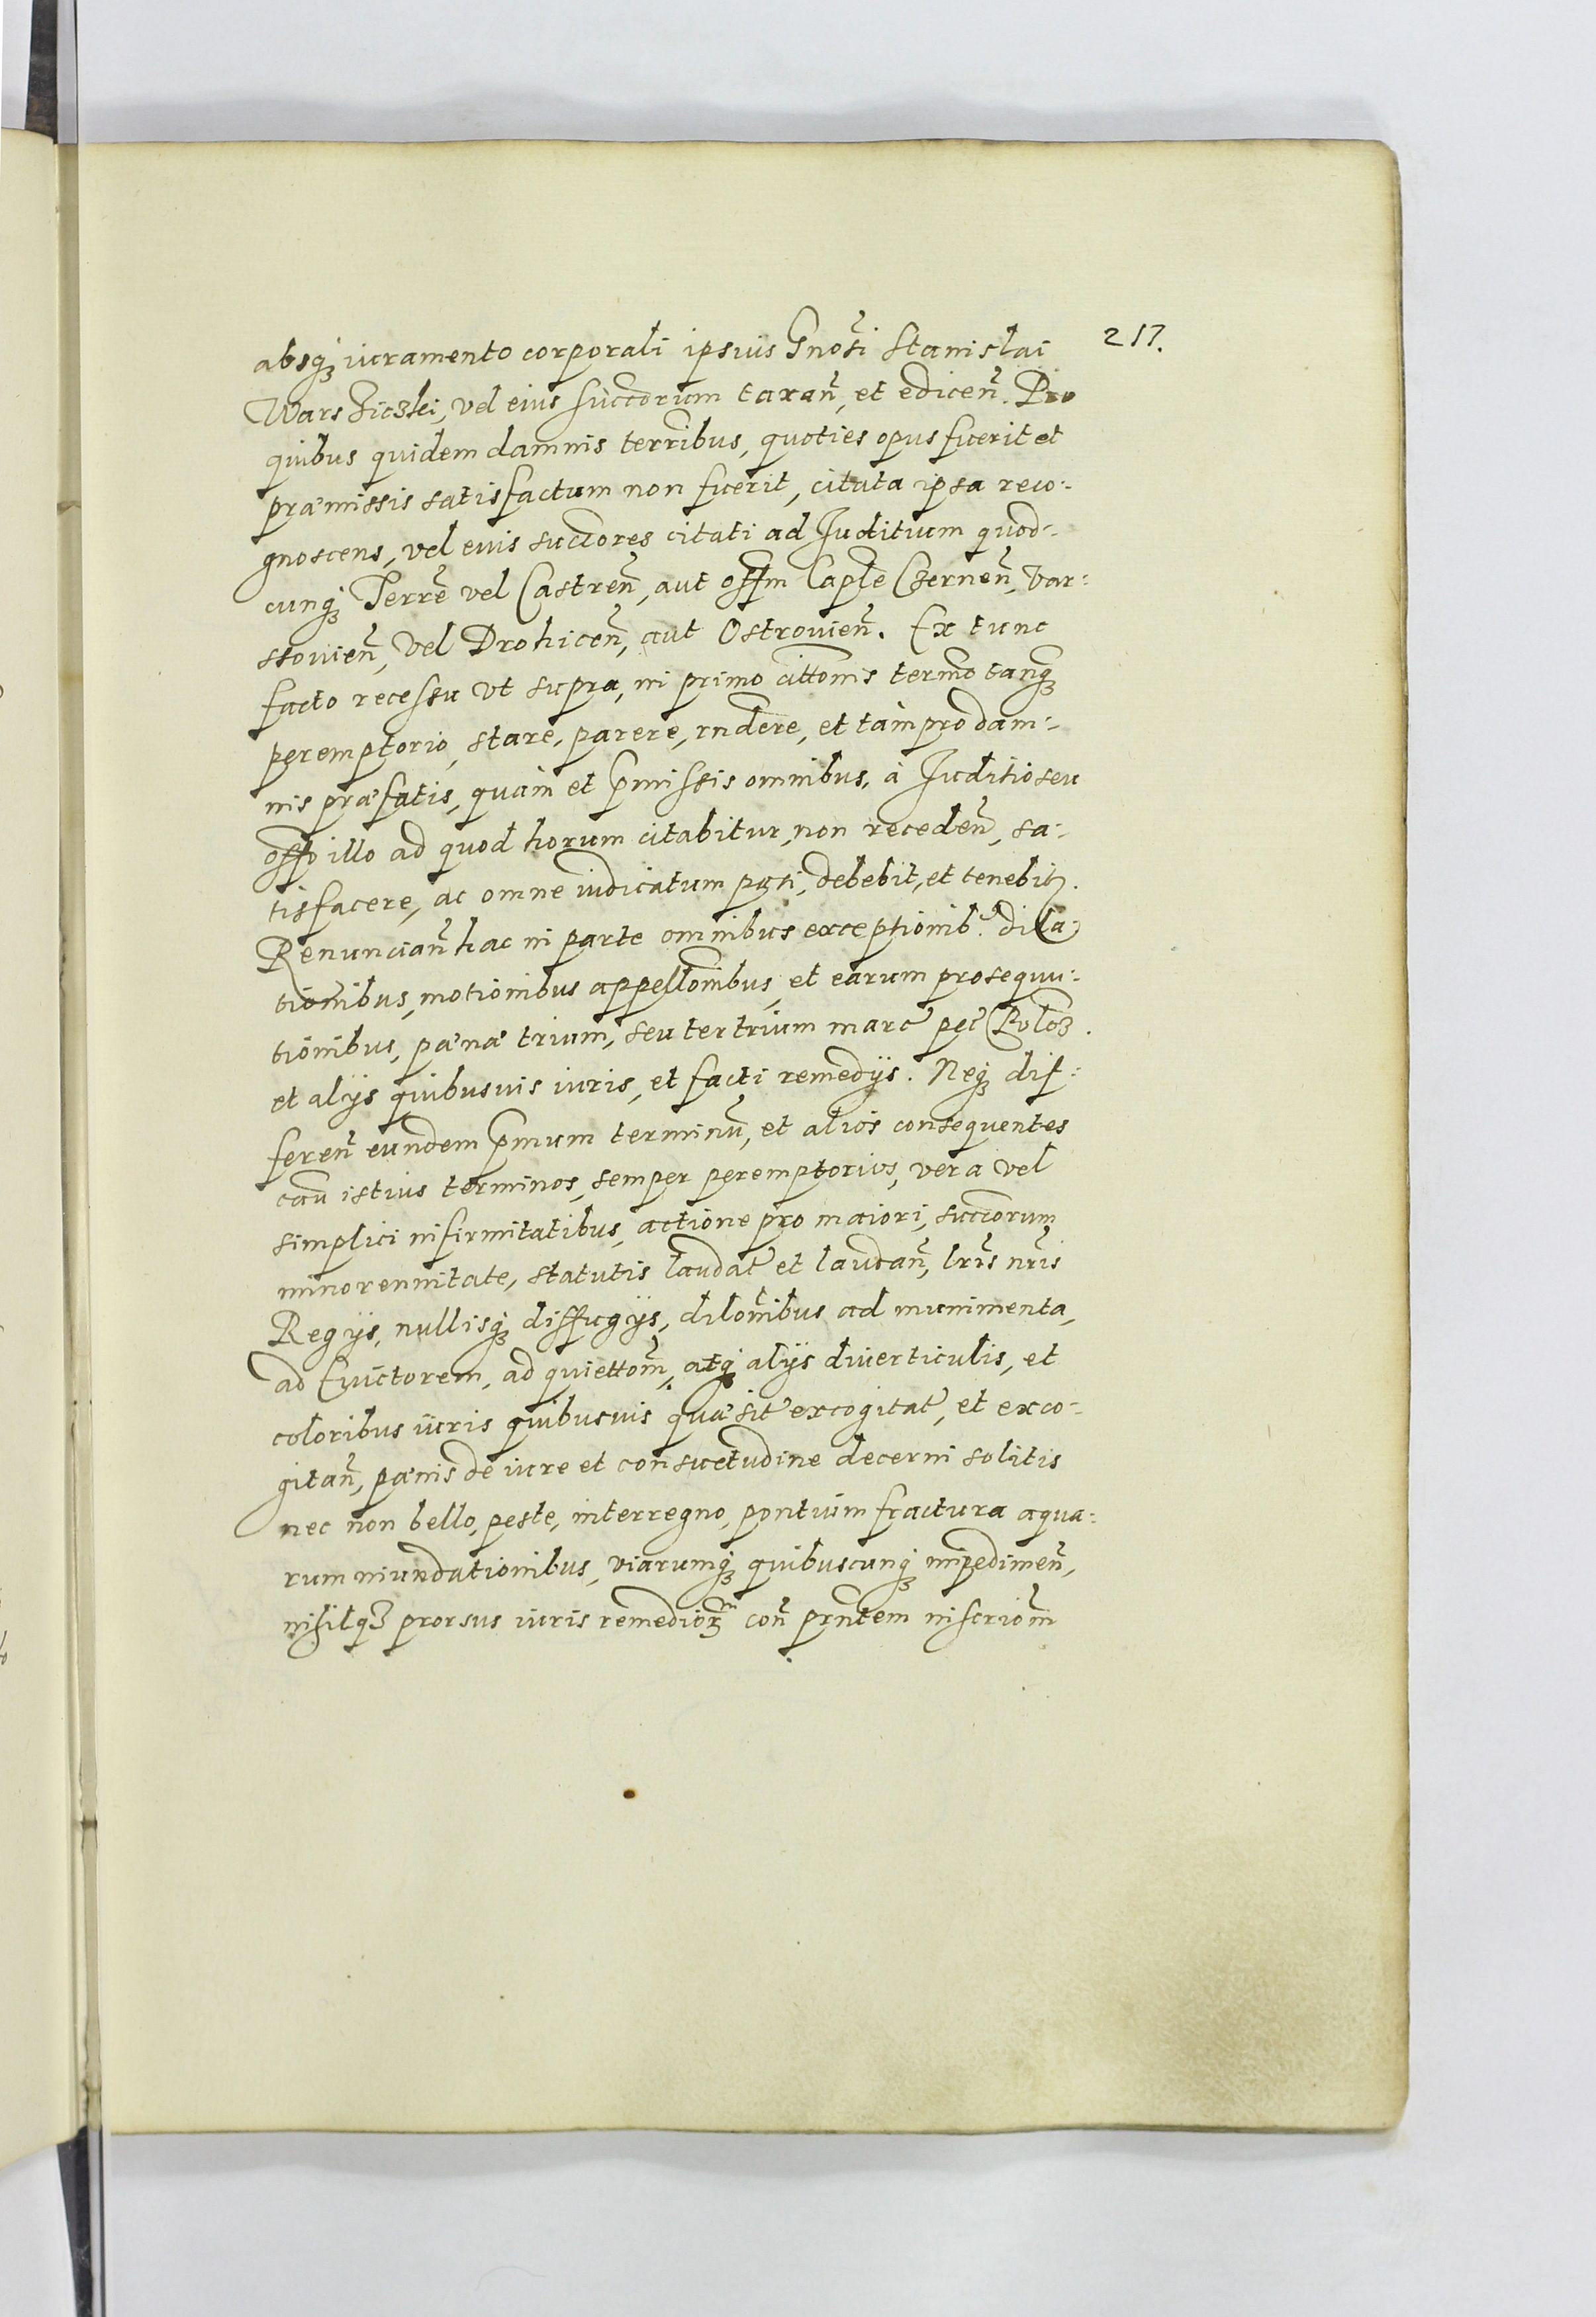 217.
absq₃ iuramento corporali ipsius Gnosi Stanislai
Warshiczki, vel eius succorum taxan̄, et edicen̄. Pro
quibus quidem damnis terribus, quoties opus fuerit et
præmissis satisfactum non fuerit, citata ipsa reco-
gnoscens, vel euis succores citati ad Juditium quod-
cunq₃ Terrē vel Castren̄, aut offm Caplē Czernen̄, Var-
ssouien̄, vel Drohicen̄, aut Ostrouien̄. Ex tunc
facto recessu vt supra, in primo cittonis termō tanq₃
peremptorio, stare, parere, rndere, et tam pro dam-
nis præfatis, quàm et pmissis omnibus, à Juditio seu
offo illo ad quod horum citabitur, non receden̄, sa-
tisfacere, ac omne iudicatum pati, debebit, et tenebit₃.
Renuncian̄ hac in parte omnibus exceptionib₉ dila-
tionibus, motionibus appellōnibus, et earum prosequu-
tionibus, pænæ trium, seu ter trium marc̄ pec̄ Polo₃.
et alijs quibusuis iuris, et facti remedijs. Neq₃ dif-
feren̄ eundem pmum terminū, et alios consequentes
cau istius terminos, semper peremptorios, vera vel
simplici infirmitatibus, actione pro maiori, succorum
minorennitate, statutis laudat̄ et laudan̄, lrīs nrīs
Regijs, nullisq₃ diffugijs, dilōnibus ad munimenta,
ad Euictorem, ad quiettōm, atq₃ alijs diuerticulis, et
coloribus iuris quibusuis quæsit̄ excogitat̄, et exco-
gitan̄, pænis de iure et consuetudine decerni solitis
nec non bello, peste, interregno, pontium fractura aqua-
rum inundationibus, viarumq₃ quibuscunq₃ impedimen̄,
nihilq₃ prorsus iuris remedior₃ con̄ prntem inscriōm